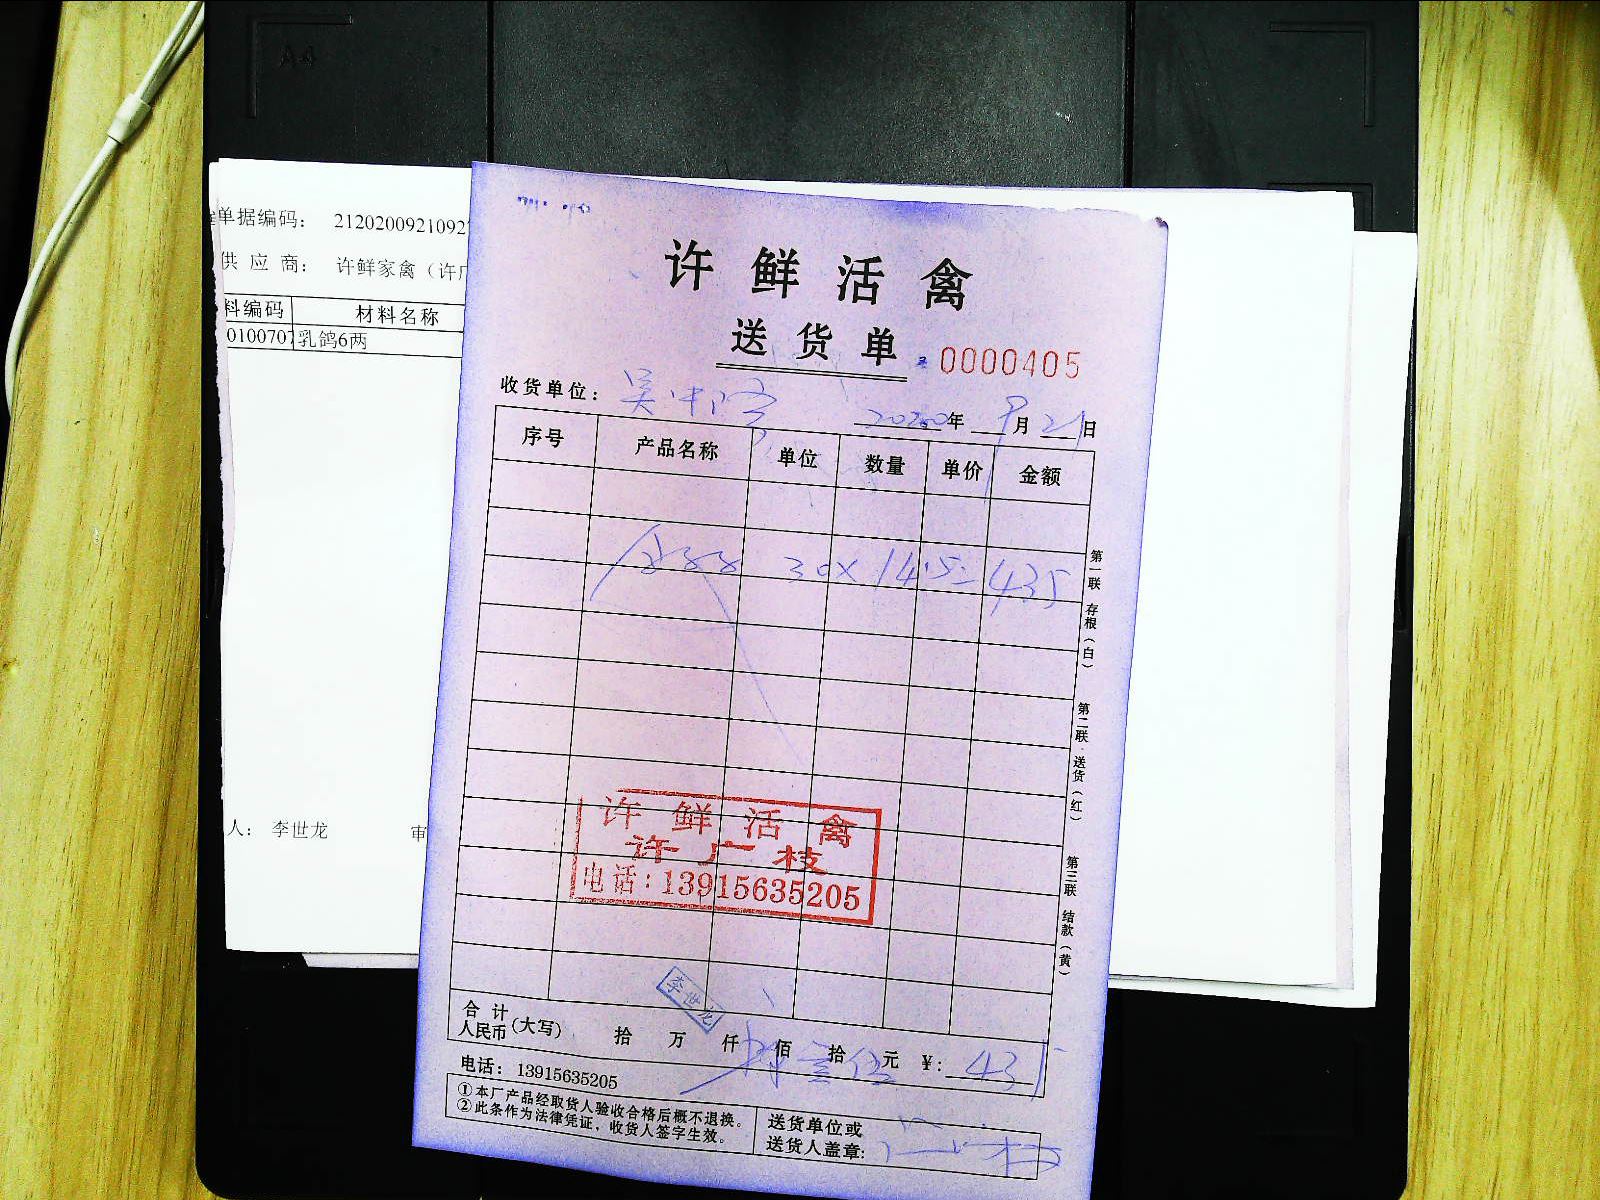 A4
单据编码： 2120200921092
供 应 商： 许鲜家禽（许广
料编码 材料名称
0100707 乳鸽6两
人： 李世龙 审
许鲜活禽
送货单
0000405
收货单位： 吴中
2020年 9月21日
序号 产品名称 单位 数量 单价 金额
30×14.5=435
第一联 存根（白）
第二联 送货（红）
第三联 结款（黄）
许鲜活禽
许广枝
电话：13915635205
李世龙
合计
人民币（大写） 拾 万 仟 佰 拾 元 ¥：435
电话：13915635205
①本厂产品经取货人验收合格后概不退换。
②此条作为法律凭证，收货人签字生效。
送货单位或
送货人盖章：